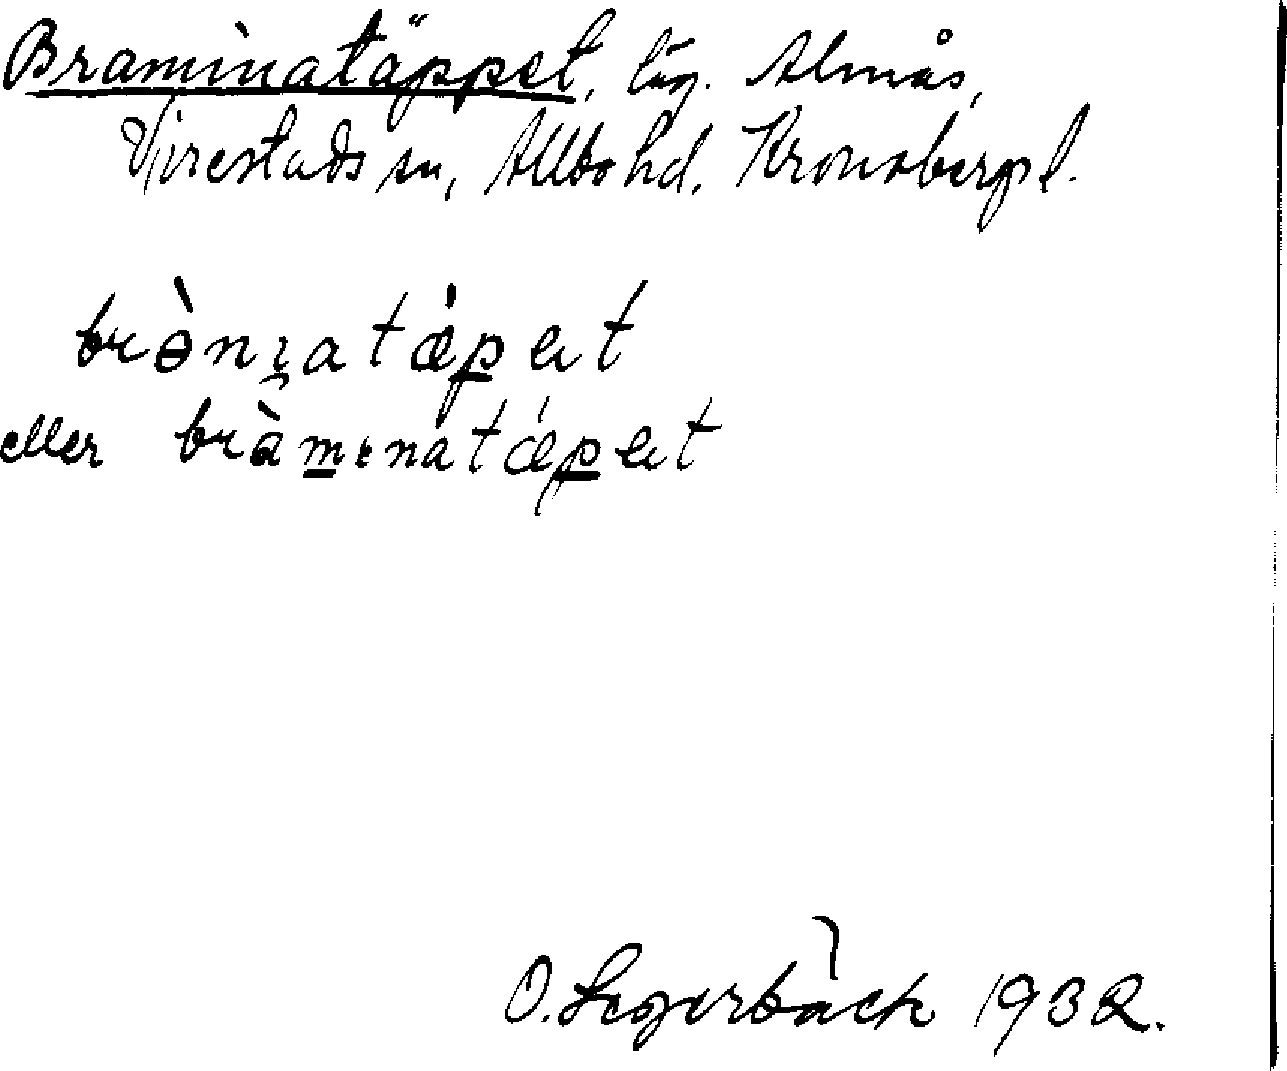 Braminatäppet, läg. Almås,
Virestads sn, Allbo hd. Kronobergs l.
brònıatǽpət
eller bràmınatǽpət
O. Segerbäck 1932.